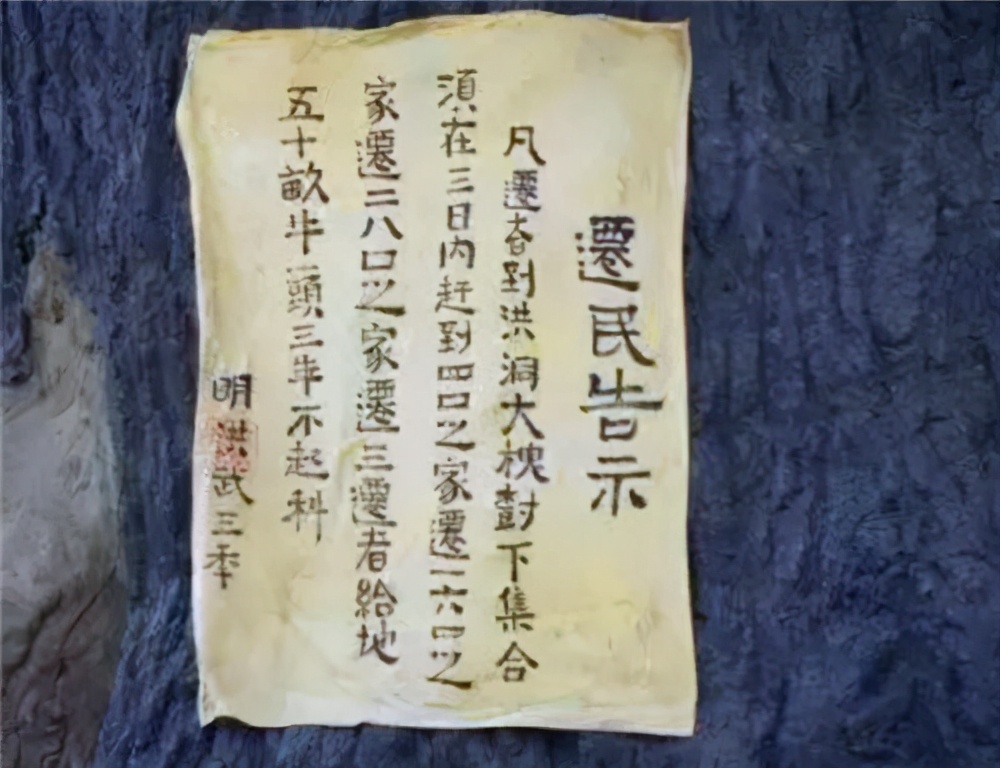 遷民告示
凡遷者到洪洞大槐樹下集合
須在三日内赶到四口之家遷一六口之
家遷二八口之家遷三遷者給地
五十畝牛一頭三年不起科
明洪武三秊